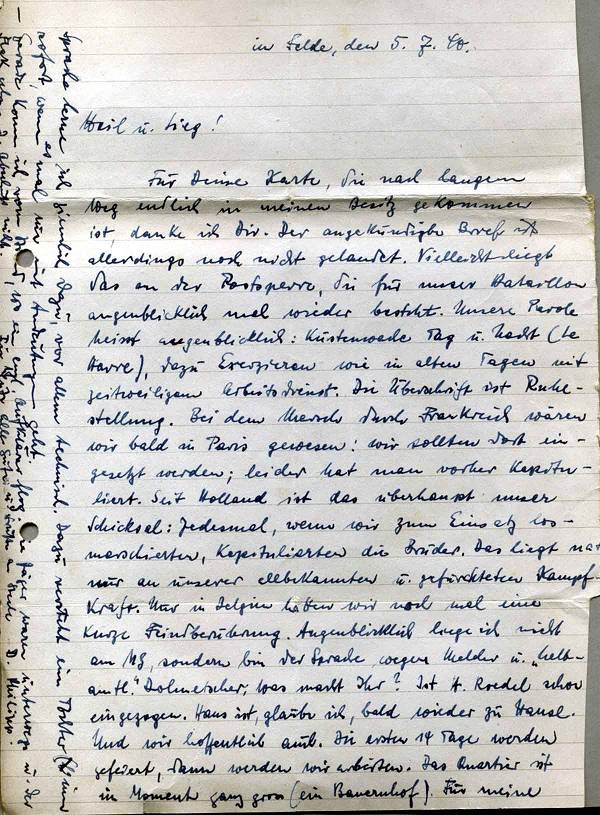 im Felde, den 5. 7. 40.
Heil u. Sieg!
Für Deine Karte, die nach langem
Weg endlich in meinen Besitz gekommen
ist, danke ich Dir. Der angekündigte Brief ist
allerdings noch nicht gelandet. Vielleicht liegt
das an der Postsperre, die für unser Bataillon
augenblicklich mal wieder besteht. Unsere Parole
heisst augenblicklich: Küstenwache Tag u. Nacht (Le
Havre), dazu Exerzieren wie in alten Tagen mit
zeitweiligem Arbeitsdienst. Die Überschrift ist Ruhe-
stellung. Bei dem Marsch durch Frankreich wären
wir bald in Paris gewesen: wir sollten dort ein-
gesetzt werden; leider hat man vorher kapitu-
liert. Seit Holland ist das überhaupt unser
Schicksal: Jedesmal, wenn wir zum Einsatz los-
marschierten, kapitulierten die Brüder. Das liegt
nur an unserer allbekannten u. gefürchteten Kampf-
kraft. Nur in Belgien hatten wir noch mal eine
kurze Feindberührung. Augenblicklich liege ich nicht
am MG, sondern bin der Sprache wegen Melder u. „halb-
amtl." Dolmetscher. Was macht Ihr? Ist H. Roedel schon
eingezogen. Hans ist, glaube ich, bald wieder zu Hause.
Und wir hoffentlich auch. Die ersten 14 Tage werden
gefeiert, dann werden wir arbeiten. Das Quartier ist
im Moment ganz gross (ein Bauernhof). Für meine
Sprache lerne ich ziemlich dazu, vor allem technisch. Dazu verhilft ein Tochter
sofort, wenn es mal nur mit Andeutungen geht.
Gerade komm ich vom
Jäger waren unterwegs in der
Dir alles Gute u. Grüße an Beide D.